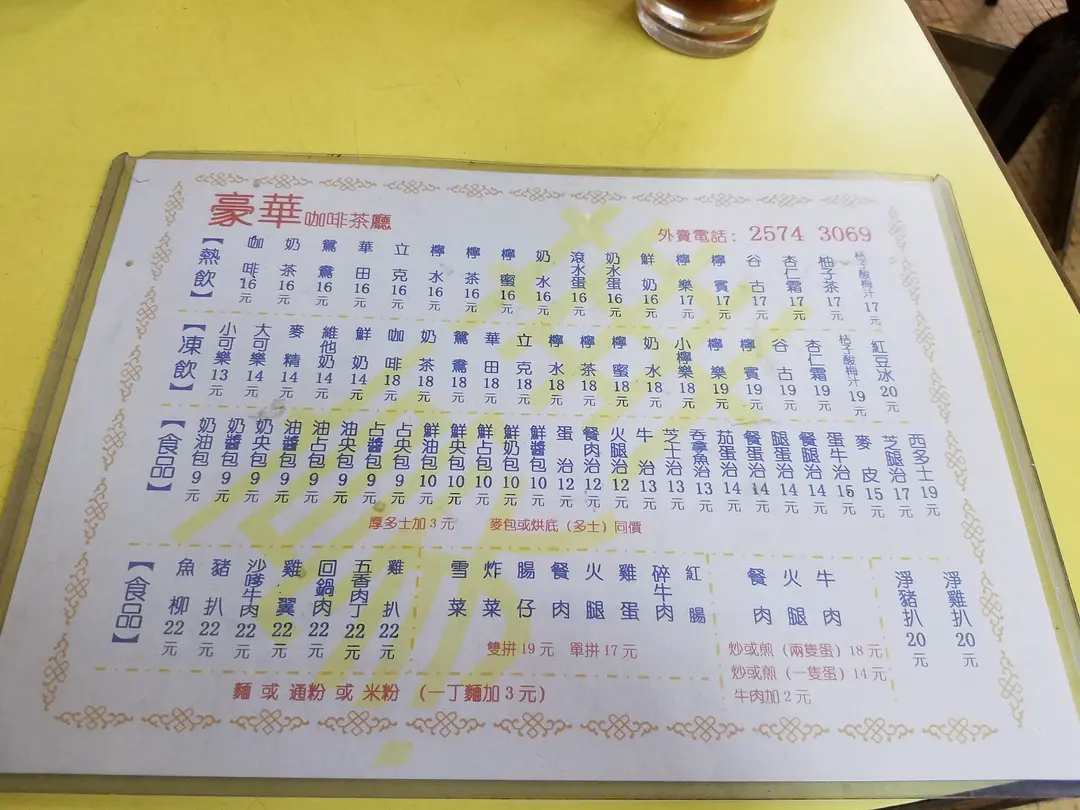 豪華咖啡茶廳
外賣電話：2574 3069
【熱飲】
咖啡16元
奶茶16元
鴛鴦16元
華田16元
立克16元
檸水16元
檸茶16元
檸蜜16元
奶水16元
滾水蛋16元
奶水蛋16元
鮮奶16元
檸樂17元
檸賓17元
谷古17元
杏仁霜17元
柚子茶17元
桔子酸梅汁17元
【凍飲】
小可樂13元
大可樂14元
麥精14元
維他奶14元
鮮奶14元
咖啡18元
奶茶18元
鴛鴦18元
華田18元
立克18元
檸水18元
檸茶18元
檸蜜18元
奶水18元
小檸樂18元
檸樂19元
檸賓19元
谷古19元
杏仁霜19元
桔子酸梅汁19元
紅豆冰20元
【食品】
奶油包9元
奶醬包9元
奶央包9元
油醬包9元
油占包9元
油央包9元
占醬包9元
占央包9元
鮮油包10元
鮮央包10元
鮮占包10元
鮮奶包10元
鮮醬包10元
蛋治12元
餐肉治12元
火腿治12元
牛治13元
芝士治13元
吞拿魚治13元
茄蛋治14元
餐蛋治14元
腿蛋治14元
餐腿治14元
蛋牛治15元
麥皮15元
芝腿治17元
西多士19元
厚多士加3元 麥包或烘底（多士）同價
【食品】
魚柳22元
豬扒22元
沙嗲牛肉22元
雞翼22元
回鍋肉22元
五香肉丁22元
雞扒22元
麵 或 通粉 或 米粉 （一丁麵加3元）
雪菜
炸菜
腸仔
餐肉
火腿
雞蛋
碎牛肉
紅腸
雙拼19元 單拼17元
餐肉
火腿
牛肉
炒或煎（兩隻蛋）18元
炒或煎（一隻蛋）14元
牛肉加2元
淨豬扒20元
淨雞扒20元